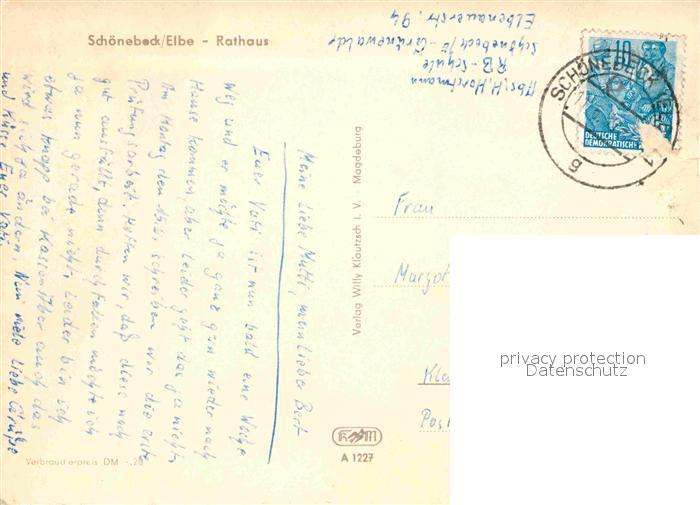 Schönebeck/Elbe - Rathaus
Abs. H. Horstmann
RB-Schule
Schönebeck/E-Grünewalde
Elbenauerstr. 94
10
SCHÖNEBECK (ELBE) 1
DEUTSCHE
DEMOKRATISCHE
Meine liebe Mutti, mein lieber Bert
Euer Vati ist nun bald eine Woche
weg und er möchte ja ganz gern wieder nach
Hause kommen, aber leider geht das ja nicht.
Am Montag den 16.2. schreiben wir die erste
Prüfungsarbeit. Hoffen wir, daß diese noch
gut ausfällt, denn durchfallen möchte ich
ja nun gerade nicht. Leider bin ich
etwas knapp bei Kasse aber auch das
wird sich ja ändern. Nun viele liebe Grüße
und Küsse Euer Vati
Verlag Willy Klautzsch i. V. Magdeburg
Frau
Margot
Kle
Pos
K M
A 1227
Verbraucherpreis DM -.20
privacy protection
Datenschutz